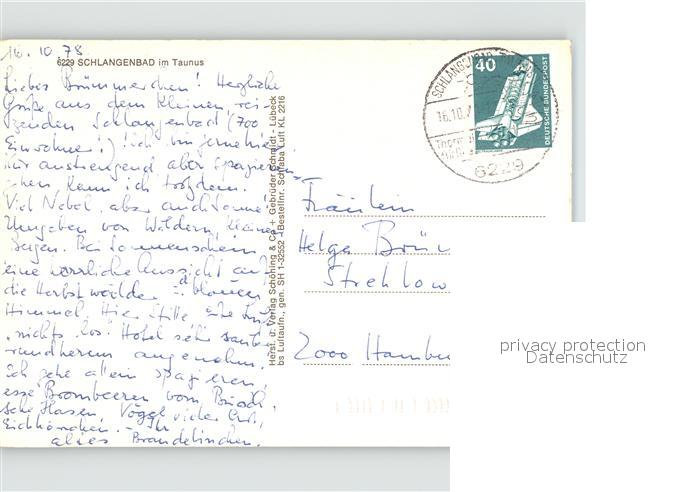 16.10.78
6229 SCHLANGENBAD im Taunus
Liebes Brümmerchen! Herzliche
Grüße aus dem kleinen rei-
zenden Schlangenbad (700
Einwohner!) Ich bin
Kur anstrengend aber spazieren
gehen, kann ich trotzdem.
Viel Nebel, aber auch Sonne!
Umgeben von Wäldern, kleinen
Bergen. Bei Sonnenschein
eine herrliche Aussicht auf
die Herbstwälder blauen
Himmel. Hier Stille
nichts los! Hotel sehr sauber
rundherum angenehm.
Ich gehe allein spazieren,
esse Brombeeren vom Busch,
sehe Hasen, Vögel vieler Art,
Eichhörnchen. - Ihr
altes
Herst. u. Verlag Schöning & Co + Gebrüder Schmidt - Lübeck
bs Luftaufn., gen. SH 1-32552 • Bestellnr. Schlaba Luft KL 2216
SCHLANGENBAD
16.10.
6229
40
DEUTSCHE BUNDESPOST
Fräulein
Helga Brü
Strehlow
2000 Hambu
privacy protection
Datenschutz